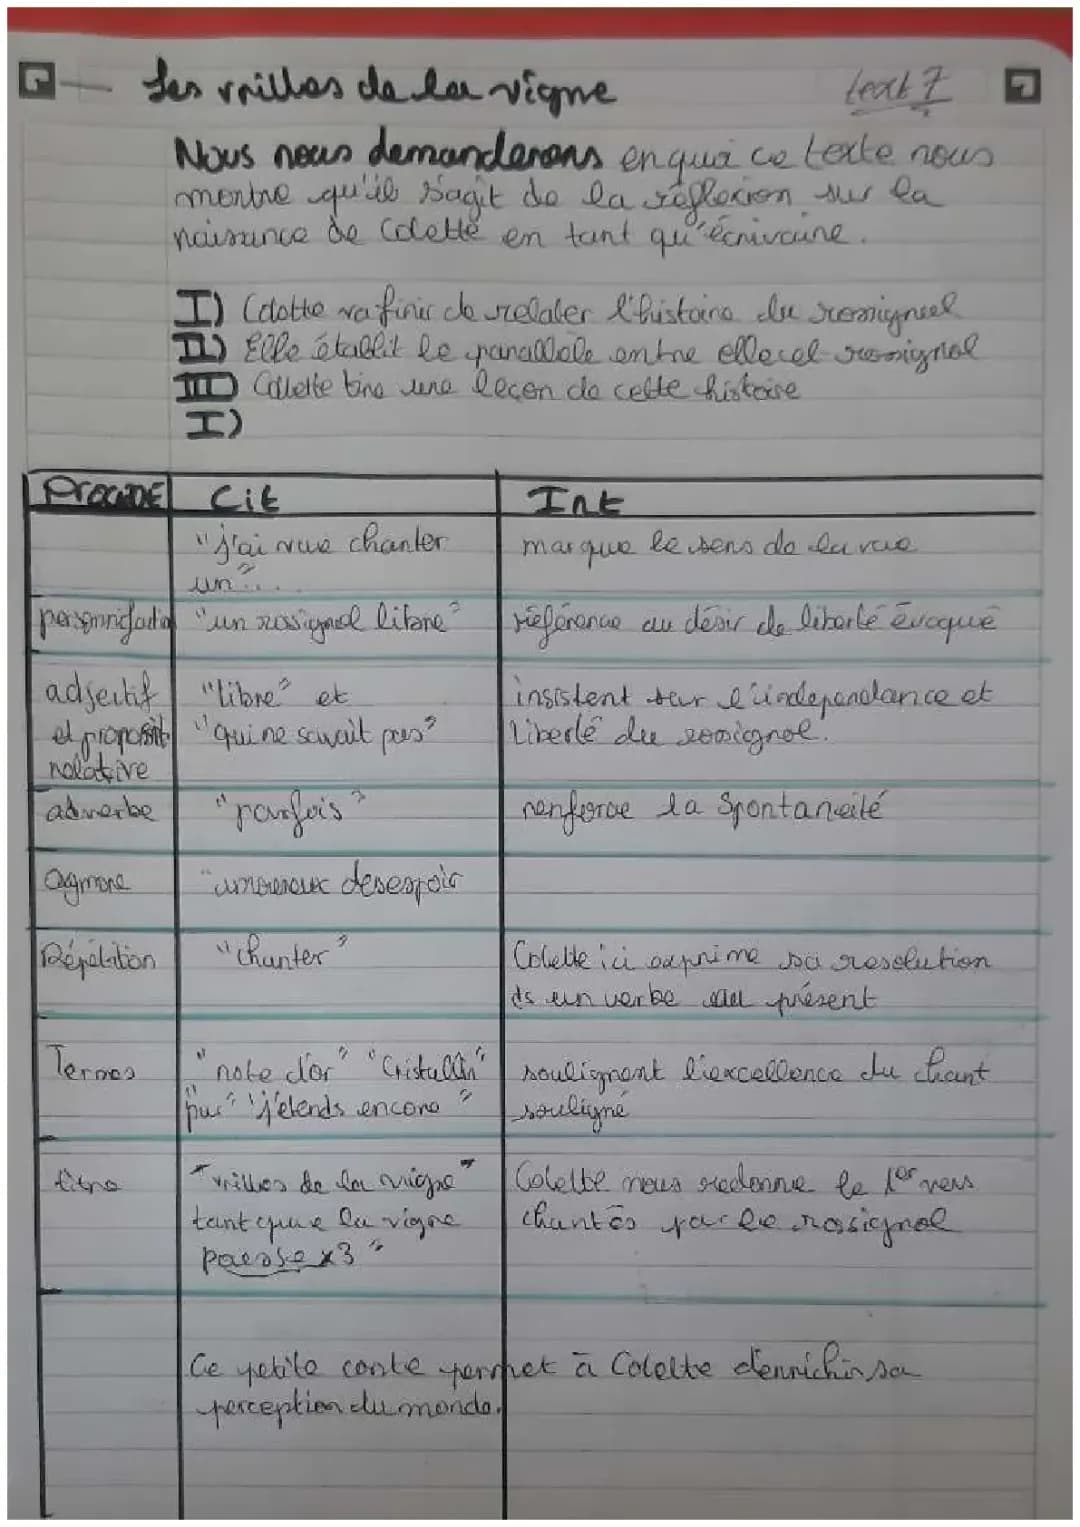 Les vrilles de la vigne text 7
Nous nous demanderons en quoi ce texte nous
montre qu'il s'agit de la réflexion sur la
naissance de Colette en tant qu'écrivaine.
I) Colette va finir de relater l'histoire du rossignol
II) Elle établit le parallèle entre elle et rossignol
III) Colette tire une leçon de cette histoire
I)
PROCEDE Cit Int
"j'ai vue chanter marque le sens de la vue
un"...
personnification "un rossignol libre" référence au désir de liberté évoqué
adjectif "libre" et insistent sur l'independance et
et proposit "qui ne savait pas" liberté du rossignol.
relative
adverbe "parfois" renforce la spontanéité
"amoureux desespoir
Répétition "chanter" Colette ici exprime sa resolution
ds un verbe au présent
Termes "note d'or" "Cristallin" soulignent l'excellence du chant
pur" "j'etends encore" souligné
titre "vrilles de la vigne" Colette nous redonne le 1er vers
tant que la vigne chantés par le rossignol
pousse x3"
Ce petite conte permet à Colette d'enrichir sa
perception du monde.